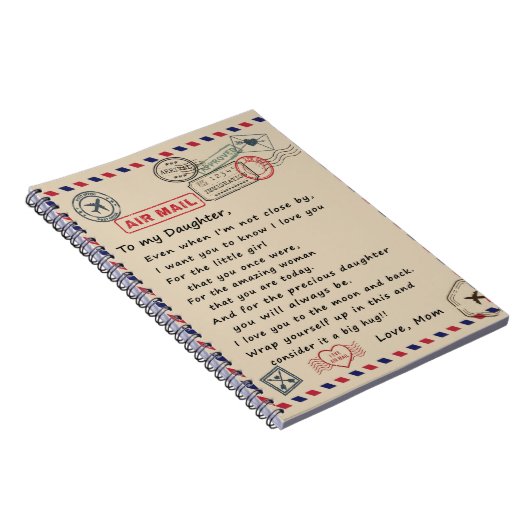 ARRIVED
APPROVED
1234
IMMIGRATION
AIR MAIL
To my Daughter,
Even when I'm not close by,
I want you to know I love you
For the little girl
that you once were,
For the amazing woman
that you are today.
And for the precious daughter
you will always be.
I love you to the moon and back.
Wrap yourself up in this and
consider it a big hug!!
Love, Mom